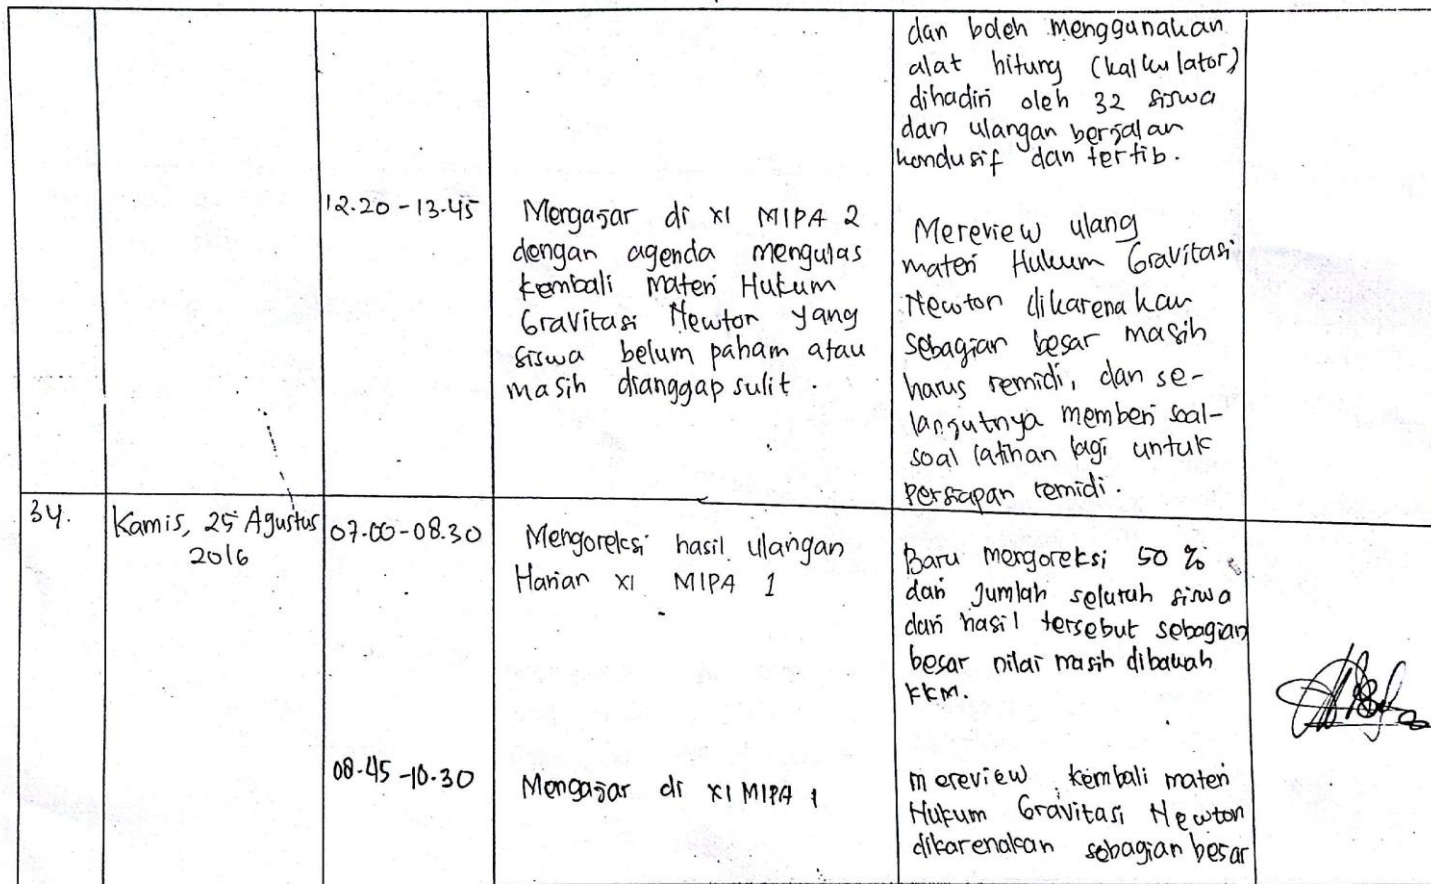 dan boleh menggunakan
alat hitung (kalkulator)
dihadiri oleh 32 siswa
dan ulangan berjalan
kondusif dan tertib.
12.20 - 13.45
Mengajar di XI MIPA 2
dengan agenda mengulas
kembali materi Hukum
Gravitasi Newton yang
siswa belum paham atau
masih dianggap sulit.
Mereview ulang
materi Hukum Gravitasi
Newton dikarenakan
sebagian besar masih
harus remidi, dan se-
lanjutnya memberi soal-
soal latihan lagi untuk
persiapan remidi.
34.
Kamis, 25 Agustus
2016
07.00-08.30
Mengoreksi hasil ulangan
Harian XI MIPA 1
Baru mengoreksi 50 %
dari Jumlah seluruh siswa
dari hasil tersebut sebagian
besar nilai masih dibawah
KKM.
08.45 -10.30
Mengajar di XI MIPA 1
mereview kembali materi
Hukum Gravitasi Newton
dikarenakan sebagian besar